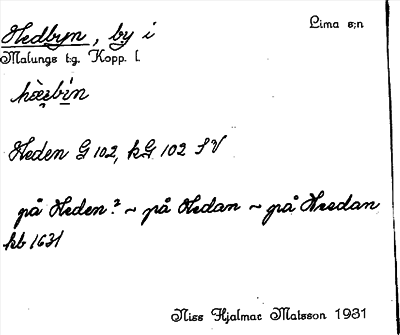 Hedbyn, by i Lima s:n
Malungs t:g. Kopp. l.
Heden G 102, kG 102 SV
på Heden.² ~ på Hedan ~ på Heedan
kb 1631
Niss Hjalmar Matsson 1931